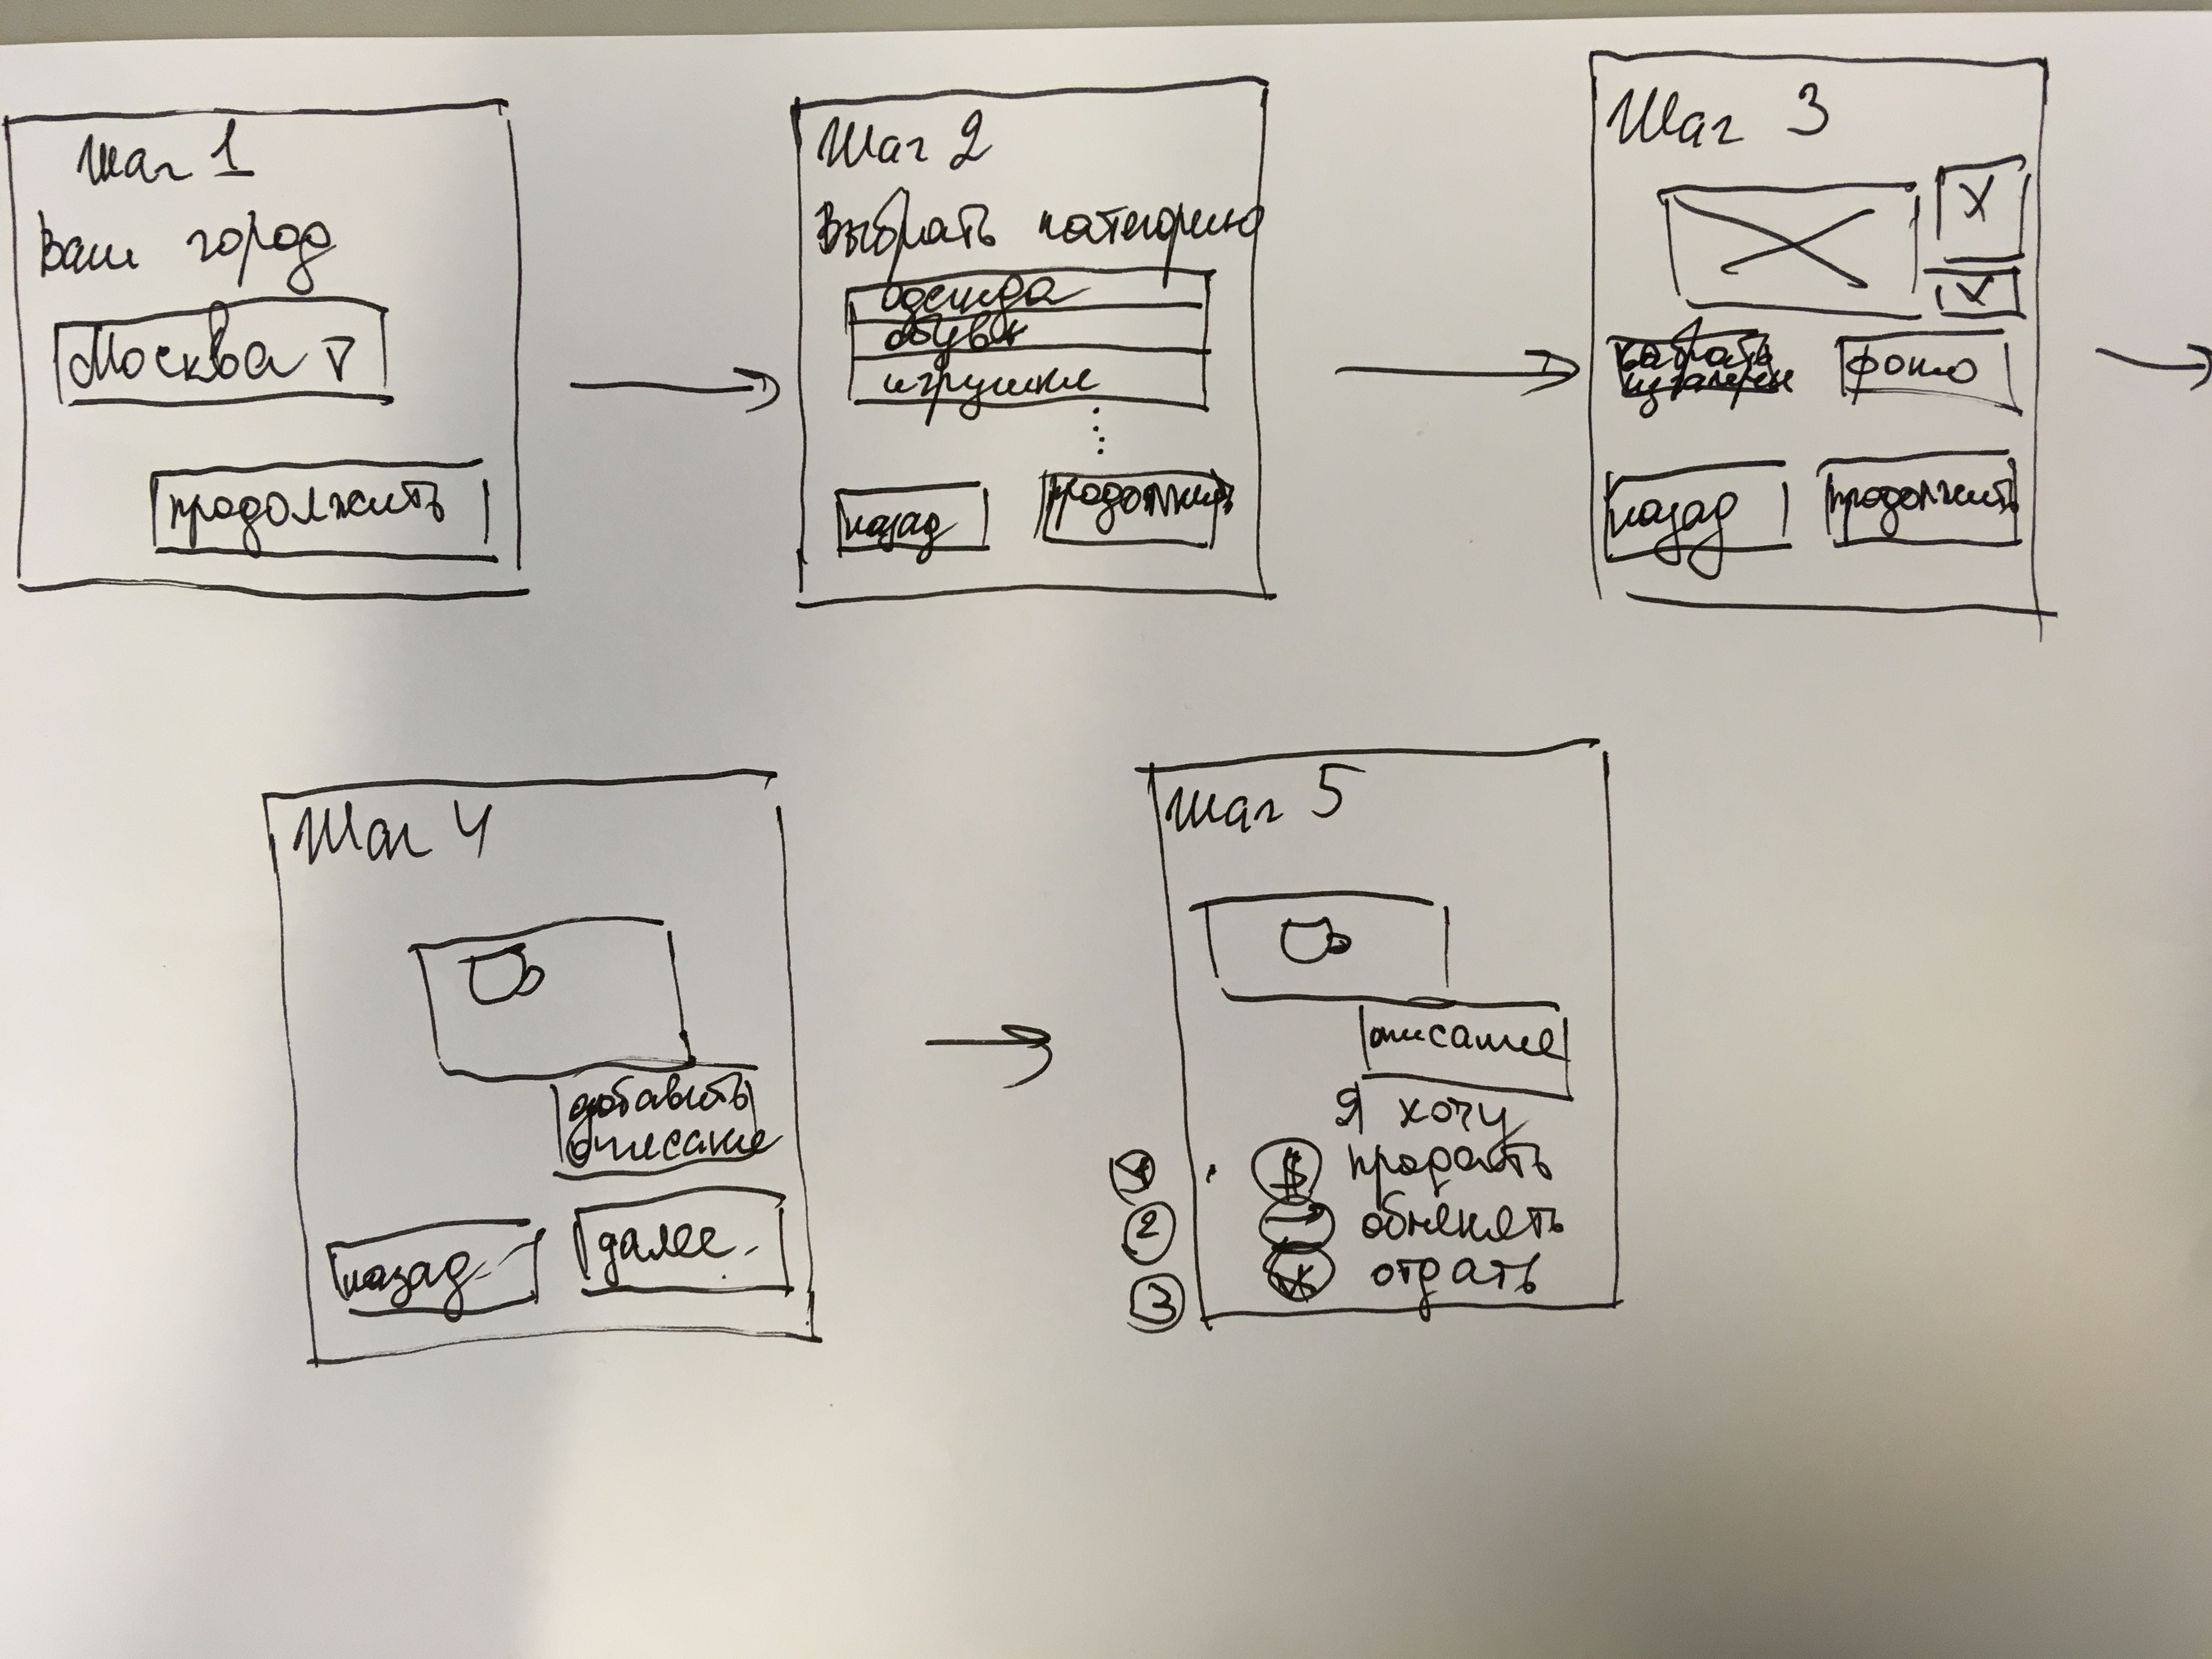 Шаг 1
Ваш город
Москва
продолжить
Шаг 2
Выбрать категорию
одежда
обувь
игрушки
назад
продолжить
Шаг 3
X
выбрать
из галереи
фото
назад
продолжить
Шаг 4
добавить
описание
назад
далее
Шаг 5
описание
Я хочу
1 $ продать
2 обменять
3 отдать